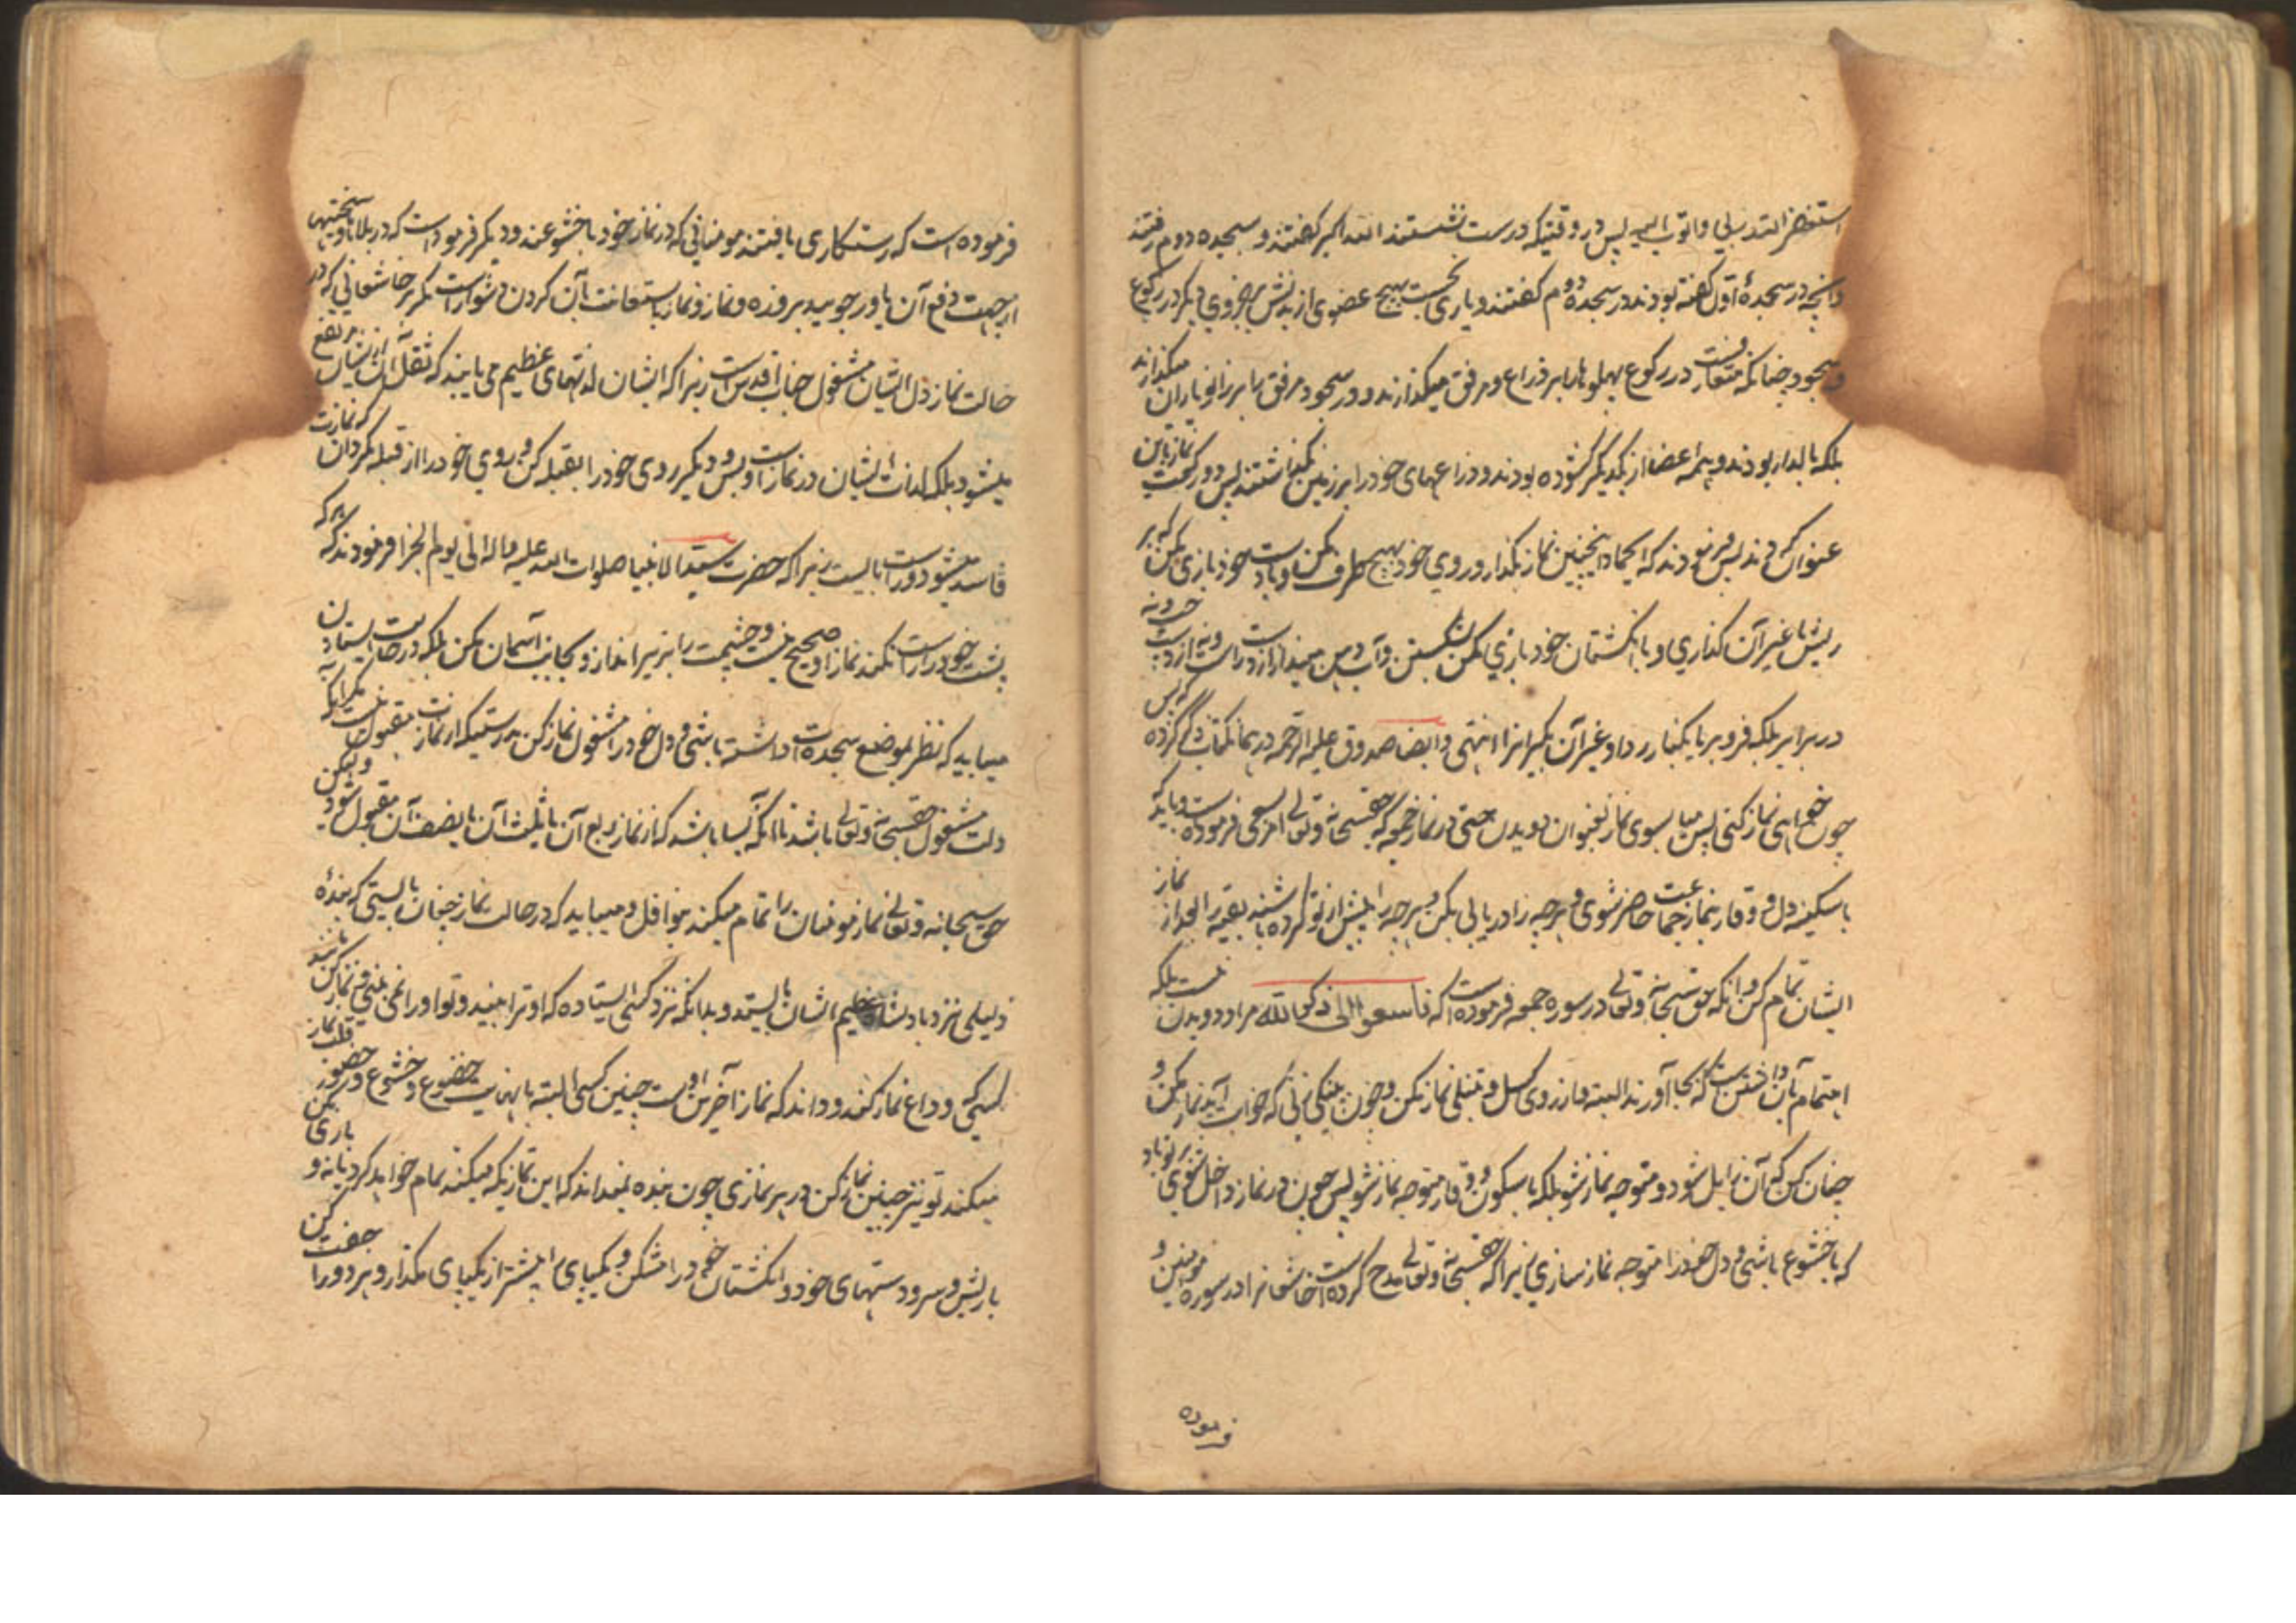 استغفر الله ربی و اتوب الیه پس در وقتیکه درست نشستند الله اکبر گفتند و بسجده دوم رفتند
و آنچه در سجدهٔ اول گفته بودند در سجده دوم گفتند و یاری نجست هیچ عضوی از بدنش بر جزوی دیگر در رکوع
و سجود چنانکه متعارفست در رکوع پهلوها را بر ذراع و مرفق میگذارند و در سجود مرفق را بر زانو یا ران میگذارند
بلکه بالدار بودند و همه اعضا از یکدیگر گشوده بودند و ذراعهای خود را بر زمین نگذاشتند پس دو رکعت نماز باین
عنوان کردند پس فرمودند که ای حماد اینچنین نماز بگذار و روی خود بهیچ طرف مکن و با دست خود بازی مکن که بر
ریش یا غیر آن گذاری و با انگشتان خود بازی مکن شکستن و آب دهن مینداز از دست راست و نه از دست چپ و نه
در برابر بلکه فرو بر یا بکنار ردا و غیر آن بگیر انرا انتهی و ایضا صدوق علیه الرحمه در همان کتاب ذکر کرده که پس
چون خواهی نماز کنی پس میا بسوی نماز بعنوان دویدن حتی در نماز جمعه که حقسبحانه و تعالی امر بسعی فرموده است و باید که
با سکینه دل و وقار بنماز جماعت حاضر شوی و هر چه را دریابی بکن و هر چه را پیش از تو کرده باشند بقیه را بعد از نماز
ایشان تمام کن و آنکه حق سبحانه و تعالی در سوره جمعه فرموده است که فاسعوا الی ذکر الله مراد دویدن نیست بلکه
اهتمام بآن داشتن است که بجا آورند البته و از روی کسل و تنبلی نماز مکن و چون پینکی زنی که خواب آید نماز مکن و
چنان کن که آن زایل شود و متوجه نماز شو بلکه با سکون و وقار متوجه نماز شو پس چون در نماز داخل شوی بر تو باد
که با خشوع باشی و دل خود را متوجه نماز سازی زیرا که حقسبحانه و تعالی مدح کرده است خاشعانرا در سوره مومنین و
فرموده
فرموده است که رستگاری یافتند مومنانی که در نماز خود با خشوعند و دیگر فرموده است که در بلاها و سختیها
از جهت دفع آن یاور جویید بروزه و نماز و نماز باستعانت بآن کردن دشوار است مگر بر خاشعانی که در
حالت نماز دل ایشان مشغول جناب اقدس است زیرا که ایشان لذتهای عظیم می یابند که ثقل آن از ایشان مرتفع
میشود بلکه لذت ایشان در نماز است و بس و دیگر روی خود را بقبله کن و روی خود را از قبله مگردان که نمازت
فاسد میشود و راست بایست زیرا که حضرت سید الانبیا صلوات الله علیه و آله الی یوم الجزا فرمودند که هر که
پشت خود را راست نکند نماز او صحیح نیست و چشمت را بزیر انداز و بجانب آسمان مکن بلکه در حالت ایستادن
میباید که نظر بموضع سجده ات داشته باشی و دل خود را مشغول نماز کن بدرستیکه از نمازت مقبول نیست مگر آنکه
دلت مشغول حقسبحانه و تعالی باشد تا آنکه بسا باشد که از نماز ربع آن یا ثلث آن یا نصف آن مقبول شود و لیکن
حق سبحانه و تعالی نماز مومنان را تمام میکند بنوافل و میباید که در حالت نماز چنان بایستی که بندهٔ
ذلیلی نزد پادشاه عظیم الشان بایستد و بدانکه نزد کسی ایستاده که او ترا میبیند و تو او را نمی بینی و نماز کن باشد
کسی که وداع نماز کند و داند که نماز آخرین اوست چنین کسی البته با نهایت خضوع و خشوع و حضور قلب نماز
میکند تو نیز چنین نماز کن در هر نمازی چون بنده نمیداند که این نمازیکه میکند تمام خواهد کرد یا نه و بازی مکن
با ریش و سر و دستهای خود و انگشتان خود را مشکن و یکپای را پیشتر از یکپای مگذار و هر دو را جفت کن